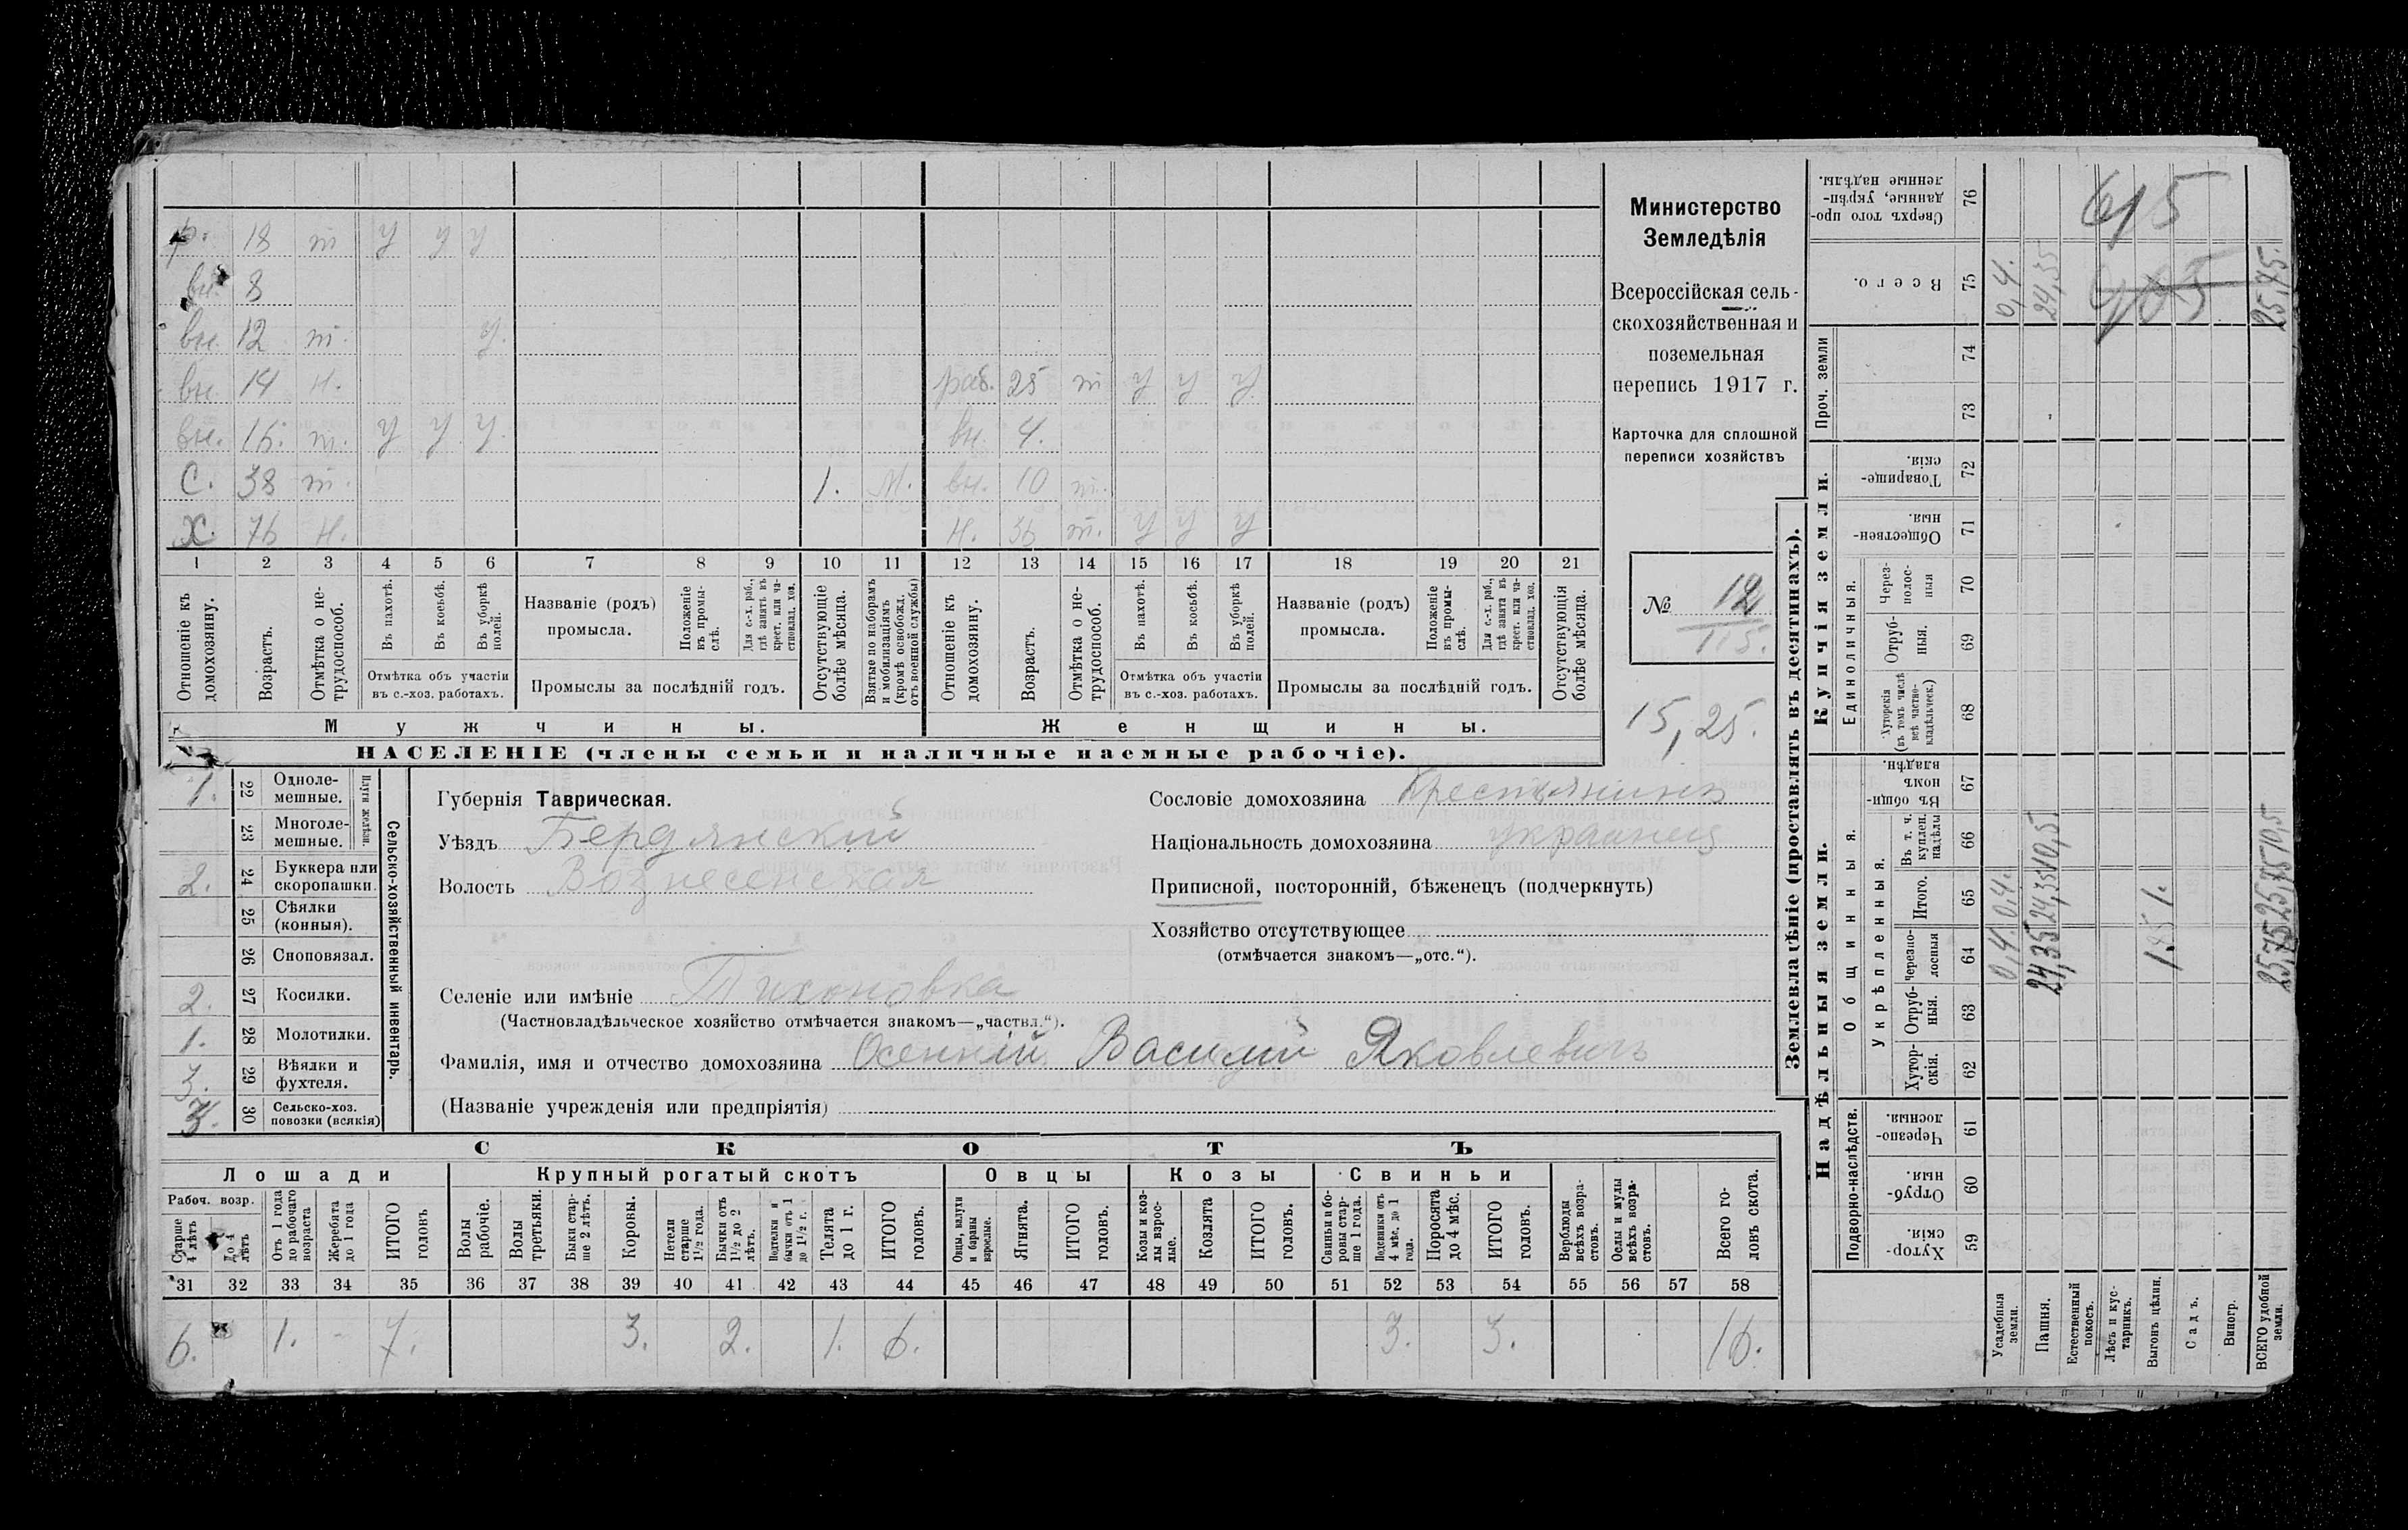 р. 18 т у у у
вн. 8
вн. 12 т. у.
вн. 14 н. раб. 25 т у у у
вн. 16. т. у у у. вн. 4.
С. 38 т. 1. М. вн. 10 т.
Х. 76 н. н. 36 т. у у у
1 2 3 4 5 6 7 8 9 10 11 12 13 14 15 16 17 18 19 20 21
Отношеніе къ домохозяину.
Возрастъ.
Отмѣтка о не-трудоспособ.
Въ пахотѣ.
Въ косьбѣ.
Въ уборкѣ полей.
Отмѣтка объ участіи
въ с.-хоз. работахъ.
Названіе (родъ)
промысла.
Положеніе въ промы-слѣ.
Для с.-х. раб., гдѣ занятъ въ крест. или ча-стновлад. хоз.
Промыслы за послѣдній годъ.
Отсутствующіе болѣе мѣсяца.
Взятые по наборамъ и мобилизаціямъ (кромѣ освобожд. отъ военной службы)
Отношеніе къ домохозяину.
Возрастъ.
Отмѣтка о не-трудоспособ.
Въ пахотѣ.
Въ косьбѣ.
Въ уборкѣ полей.
Отмѣтка объ участіи
въ с.-хоз. работахъ.
Названіе (родъ)
промысла.
Положеніе въ промы-слѣ.
Для с.-х. раб., гдѣ занята въ крест. или ча-стновлад. хоз.
Промыслы за послѣдній годъ.
Отсутствующія болѣе мѣсяца.
Мужчины.
Женщины.
НАСЕЛЕНІЕ (члены семьи и наличные наемные рабочіе).
Министерство
Земледѣлія
Всероссійская сель-
скохозяйственная и
поземельная
перепись 1917 г.
Карточка для сплошной
переписи хозяйствъ
№ 12
115.
15,25.
1. 22 Одноле-мешные.
23 Многоле-мешные.
Плуги желѣзн.
2. 24 Буккера или скоропашки.
25 Сѣялки (конныя).
26 Сноповязал.
2. 27 Косилки.
1. 28 Молотилки.
3. 29 Вѣялки и фухтеля.
3. 30 Сельско-хоз. повозки (всякія)
Сельско-хозяйственный инвентарь.
Губернія Таврическая.
Уѣздъ Бердянскій
Волость Вознесенская
Сословіе домохозяина Крестьянинъ
Національность домохозяина украинец
Приписной, посторонній, бѣженецъ (подчеркнуть)
Хозяйство отсутствующее
(отмѣчается знакомъ—„отс.“).
Селеніе или имѣніе Тихоновка
(Частновладѣльческое хозяйство отмѣчается знакомъ—„частвл.“).
Фамилія, имя и отчество домохозяина Осенній Василій Яковлевичъ
(Названіе учрежденія или предпріятія)
СКОТЪ
Лошади
Крупный рогатый скотъ
Овцы
Козы
Свиньи
Рабоч. возр.
Старше 4 лѣтъ
До 4 лѣтъ
Отъ 1 года до рабочаго возраста
Жеребята до 1 года
ИТОГО головъ
Волы рабочіе.
Волы третьяки.
Быки стар-ше 2 лѣтъ.
Коровы.
Нетели старше 1½ года.
Бычки отъ 1½ до 2 лѣтъ.
бычки отъ 1 до 1½ г.
Телята до 1 г.
ИТОГО головъ.
Овцы, валухи и бараны взрослые.
Ягнята.
ИТОГО головъ.
Козы и коз-лы взрос-лые.
Козлята
ИТОГО головъ.
Свиньи и бо-ровы стар-ше 1 года.
Подсвинки отъ 4 мѣс. до 1 года.
Поросята до 4 мѣс.
ИТОГО головъ.
Верблюды всѣхъ возра-стовъ.
Ослы и мулы всѣхъ возра-стовъ.
Всего го-ловъ скота.
31 32 33 34 35 36 37 38 39 40 41 42 43 44 45 46 47 48 49 50 51 52 53 54 55 56 57 58
6. 1. - 7. 3. 2. 1. 6. 3. 3. 16.
Землевладѣніе (проставлять въ десятинахъ).
Надѣльныя земли.
Купчія земли.
Проч. земли
Подворно-наслѣдств.
Общинныя.
Укрѣпленныя.
Единоличныя.
Хутор-скія. 59
Отруб-ныя. 60
Черезпо-лосныя 61
Хутор-скія. 62
Отруб-ныя. 63
Черезпо-лосныя 64
Итого. 65
Въ т. ч. куплен. надѣлы 66
Въ общи-номъ владѣн. 67
Хуторскія (въ томъ числѣ всѣ частно-владѣльческ.) 68
Отруб-ныя. 69
Через-полос-ныя 70
Обществен-ныя. 71
Товарище-скія. 72
73
74
Всего. 75
Сверхъ того про-данные, укрѣп-ленные надѣлы. 76
Усадебныя земли. 0,4. 0,4. 0,4.
Пашня. 24,35 24,35 10,5. 24,35
Естественный покосъ.
Лѣсъ и кус-тарникъ.
Выгонъ цѣлин. 1. 1.
Садъ.
Виногр.
ВСЕГО удобной земли. 25,75 25,75 10,5 25,75.
615
905